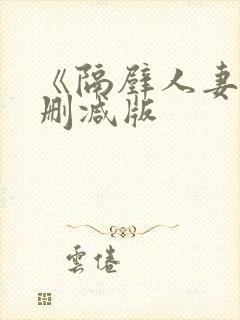 《隔壁人妻
删减版
雲倦